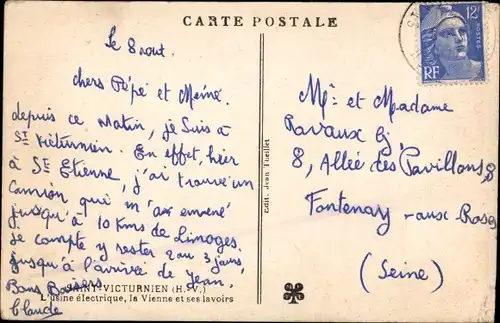 CARTE POSTALE
Le 8 aout.
chers Pépé et Mémé.
depuis ce Matin, je suis à
St Victurnien. En effet, hier
à St Etienne, j'ai trouvé un
camion qui m'a emmené
jusqu'à 10 Kms de Limoges.
je compte y rester 2 ou 3 jours,
jusqu'à l'arrivée de Jean,
Bons Baisers
Claude
SAINT-VICTURNIEN (H.-V.)
L'usine électrique, la Vienne et ses lavoirs
Edit. Jean
12F
POSTES
RF
Mr et Madame
Ravaux
8, Allée des Pavillons
Fontenay-aux-Roses
(Seine)